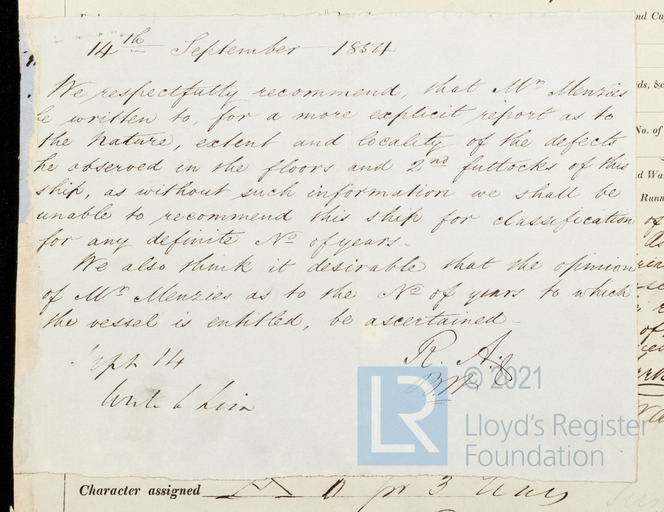 14th September 1854
We respectfully recommend, that Mr Menzies
be written to, for a more explicit report as to
the nature, extent and locality of the defects
he observed in the floors and 2nd futtocks of this
ship, as without such information we shall be
unable to recommend this ship for classification
for any definite No of years.
We also think it desirable that the opinion
of Mr Menzies as to the No of years to which
the vessel is entitled, be ascertained
Sept 14
R. A.
Write to him
LR
© 2021
Lloyd's Register
Foundation
Character assigned
for 3 Years
nd Ca
ds, &c
No. of
d Wa
Runn
of